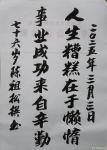 二〇三五年三月三日
人生糟糕在于懒惰
事业成功来自辛勤
七十六岁陈祖松撰书